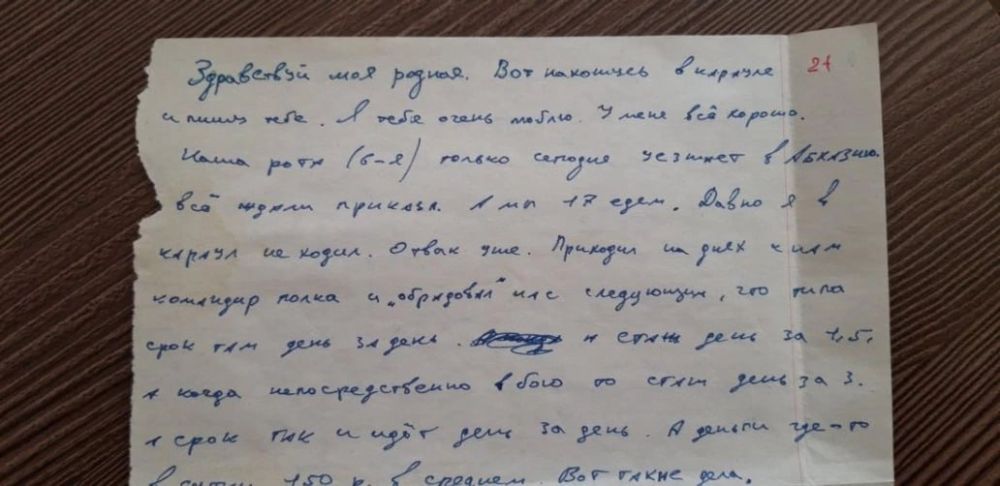 Здравствуй моя родная. Вот нахожусь в карауле
21
и пишу тебе. Я тебя очень люблю. У меня всё хорошо.
Наша рота (6-я) только сегодня уезжает в Абхазию.
всё ждали приказа. А мы 17 едем. Давно я в
караул не ходил. Отвык уже. Приходил на днях к нам
командир полка и „обрадовал" нас следующим, что типа
срок там день за день. а стаж день за 1,5.
а когда непосредственно в бою то стаж день за 3.
а срок так и идёт день за день. А деньги где-то
в сутки 150 р. в среднем. Вот такие дела.